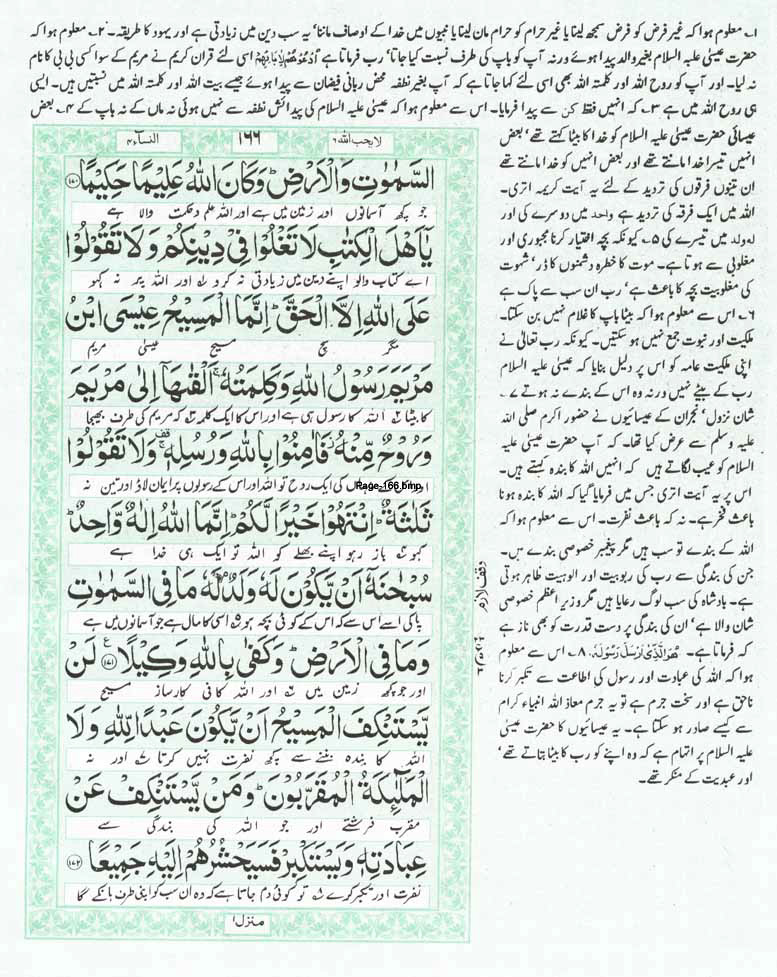 ۱؎ معلوم ہوا کہ غیر فرض کو فرض سمجھ لینا یا غیر حرام کو حرام مان لینا یا نبیوں میں خدا کے اوصاف ماننا' یہ سب دین میں زیادتی ہے اور یہود کا طریقہ۔ ۲؎ معلوم ہوا کہ
حضرت عیسیٰ علیہ السلام بغیر والد پیدا ہوئے ورنہ آپ کو باپ کی طرف نسبت کیا جاتا' رب فرماتا ہے اُدْعُوْهُمْ لِاٰبَآئِهِمْ اسی لئے قرآن کریم نے مریم کے سوا کسی بی بی کا نام
نہ لیا۔ اور آپ کو روح اللہ اور کلمتہ اللہ بھی اسی لئے کہا جاتا ہے کہ آپ بغیر نطفہ محض ربانی فیضان سے پیدا ہوئے جیسے بیت اللہ اور کلمتہ اللہ میں نسبتیں ہیں۔ ایسی
ہی روح اللہ میں ہے ۳؎ کہ انہیں فقط کن سے پیدا فرمایا۔ اس سے معلوم ہوا کہ عیسیٰ علیہ السلام کی پیدائش نطفہ سے نہیں ہوئی نہ ماں کے نہ باپ کے ۴؎ بعض
عیسائی حضرت عیسیٰ علیہ السلام کو خدا کا بیٹا کہتے تھے' بعض
انہیں تیسرا خدا مانتے تھے اور بعض انہیں کو خدا مانتے تھے
ان تینوں فرقوں کی تردید کے لئے یہ آیت کریمہ اتری۔
اللہ میں ایک فرقہ کی تردید ہے واحد میں دوسرے کی اور
لہ ولد میں تیسرے کی ۵؎ کیونکہ بچہ اختیار کرنا مجبوری اور
مغلوبی سے ہوتا ہے۔ موت کا خطرہ دشمنوں کا ڈر' شہوت
کی مغلوبیت بچہ کا باعث ہے' رب ان سب سے پاک ہے
۶؎ اس سے معلوم ہوا کہ بیٹا باپ کا غلام نہیں بن سکتا۔
ملکیت اور نبوت جمع نہیں ہو سکتیں۔ کیونکہ رب تعالیٰ نے
اپنی ملکیت عامہ کو اس پر دلیل بنایا کہ عیسیٰ علیہ السلام
رب کے بیٹے نہیں ورنہ وہ اس کے بندے نہ ہوتے ۷؎
شان نزول' نجران کے عیسائیوں نے حضور اکرم صلی اللہ
علیہ وسلم سے عرض کیا تھا۔ کہ آپ حضرت عیسیٰ علیہ
السلام کو عیب لگاتے ہیں کہ انہیں اللہ کا بندہ کہتے ہیں۔
اس پر یہ آیت اتری جس میں فرمایا گیا کہ اللہ کا بندہ ہونا
باعث فخر ہے۔ نہ کہ باعث نفرت۔ اس سے معلوم ہوا کہ
اللہ کے بندے تو سب ہیں مگر پیغمبر خصوصی بندے ہیں۔
جن کی بندگی سے رب کی ربوبیت اور الوہیت ظاہر ہوتی
ہے۔ بادشاہ کی سب لوگ رعایا ہیں مگر وزیر اعظم خصوصی
شان والا ہے' ان کی بندگی پر دست قدرت کو بھی ناز ہے
کہ فرماتا ہے۔ هُوَ الَّذِیْۤ اَرْسَلَ رَسُوْلَهٗ ۸؎ اس سے معلوم
ہوا کہ اللہ کی عبادت اور رسول کی اطاعت سے تکبر کرنا
ناحق ہے اور سخت جرم ہے تو یہ جرم معاذ اللہ انبیاء کرام
سے کیسے صادر ہو سکتا ہے۔ یہ عیسائیوں کا حضرت عیسیٰ
علیہ السلام پر اتہام ہے کہ وہ اپنے کو رب کا بیٹا بتاتے تھے'
اور عبدیت کے منکر تھے۔
لا یحب اللہ ۶ ۱۶۶ النساء ۴
السَّمٰوٰتِ وَالْاَرْضِ ؕ وَكَانَ اللّٰهُ عَلِيْمًا حَكِيْمًا ﴿۱۷۰﴾
جو کچھ آسمانوں اور زمین میں ہے اور اللہ علم و حکمت والا ہے
يٰۤاَهْلَ الْكِتٰبِ لَا تَغْلُوْا فِيْ دِيْنِكُمْ وَلَا تَقُوْلُوْا
اے کتاب والو اپنے دین میں زیادتی نہ کرو اور اللہ پر نہ کہو
عَلَى اللّٰهِ اِلَّا الْحَقَّ ؕ اِنَّمَا الْمَسِيْحُ عِيْسَى ابْنُ
مگر سچ مسیح عیسیٰ مریم
مَرْيَمَ رَسُوْلُ اللّٰهِ وَكَلِمَتُهٗ ۚ اَلْقٰىهَاۤ اِلٰى مَرْيَمَ
کا بیٹا ۲؎ اللہ کا رسول ہی ہے اور اس کا ایک کلمہ کہ مریم کی طرف بھیجا
وَرُوْحٌ مِّنْهُ ؗ فَاٰمِنُوْا بِاللّٰهِ وَرُسُلِهٖ ۚ وَلَا تَقُوْلُوْا
کی ایک روح تو اللہ اور اس کے رسولوں پر ایمان لاؤ اور تین نہ
Page-166.bmp
ثَلٰثَةٌ ؕ اِنْتَهُوْا خَيْرًا لَّكُمْ ؕ اِنَّمَا اللّٰهُ اِلٰهٌ وَّاحِدٌ ؕ
کہو باز رہو اپنے بھلے کو اللہ تو ایک ہی خدا ہے
سُبْحٰنَهٗۤ اَنْ يَّكُوْنَ لَهٗ وَلَدٌ ۘ لَهٗ مَا فِي السَّمٰوٰتِ
پاکی اسے اس سے کہ اس کے کوئی بچہ ہو ۵؎ اسی کا مال ہے جو آسمانوں میں ہے
وَمَا فِي الْاَرْضِ ؕ وَكَفٰى بِاللّٰهِ وَكِيْلًا ﴿۱۷۱﴾ لَنْ
اور جو کچھ زمین میں ۶؎ اور اللہ کافی کارساز مسیح
يَّسْتَنْكِفَ الْمَسِيْحُ اَنْ يَّكُوْنَ عَبْدًا لِّلّٰهِ وَلَا
اللہ کا بندہ بننے سے کچھ نفرت نہیں کرتا ۷؎ اور نہ
الْمَلٰٓئِكَةُ الْمُقَرَّبُوْنَ ؕ وَمَنْ يَّسْتَنْكِفْ عَنْ
مقرب فرشتے اور جو اللہ کی بندگی سے
عِبَادَتِهٖ وَيَسْتَكْبِرْ فَسَيَحْشُرُهُمْ اِلَيْهِ جَمِيْعًا ﴿۱۷۲﴾
نفرت اور تکبر کرے ۸؎ تو کوئی دم جاتا ہے کہ وہ ان سب کو اپنی طرف ہانکے گا
منزل ۱
وقف لازم